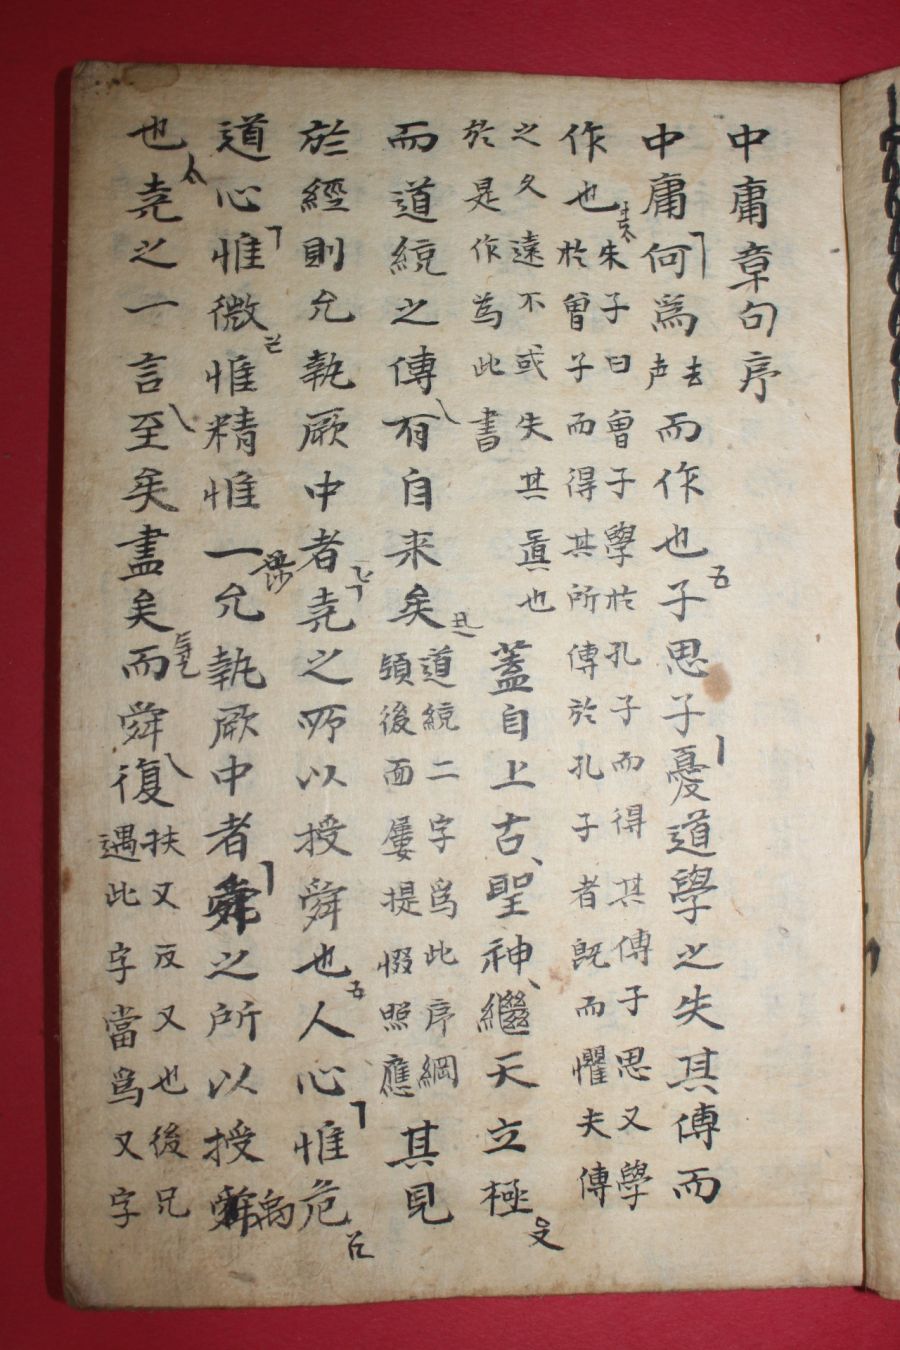 中庸章句序
中庸何爲去声而作也子思子憂道學之失其傳而
作也朱子曰曾子學於孔子而得其傳子思又學
於曾子而得其所傳於孔子者既而懼夫傳
之久遠不或失其眞也
於是作為此書
蓋自上古聖神繼天立極
而道統之傳有自来矣道統二字爲此序綱
領後面屢提掇照應其見
於經則允執厥中者堯之所以授舜也人心惟危
道心惟微惟精惟一允執厥中者舜之所以授禹
也堯之一言至矣盡矣而舜復扶又反又也後凡
遇此字當爲又字